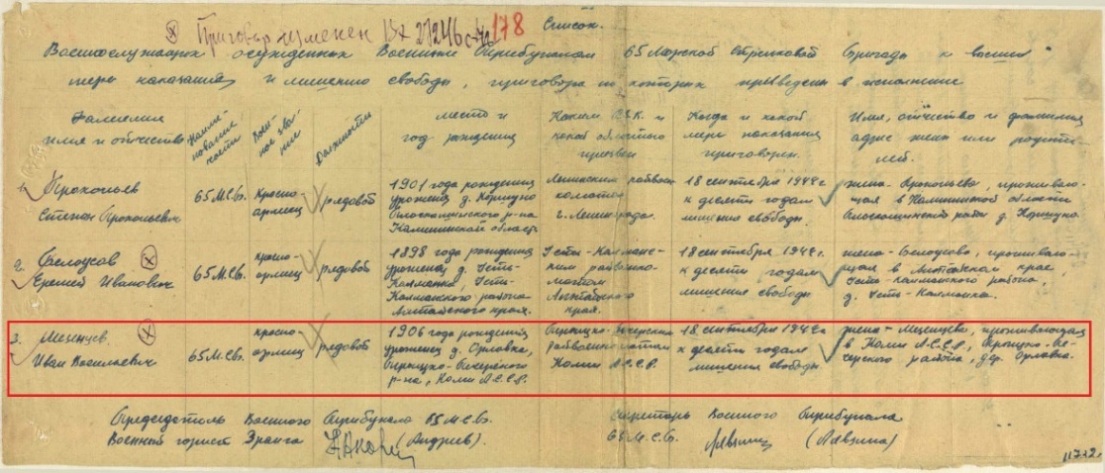 Приговор изменен Вх 27246с-42 178
Список
Военнослужащих осужденных Военным Трибуналом 65 Морской Стрелковой Бригады к высшей
мере наказания и лишению свободы, приговора на которых приведены в исполнение
Фамилия имя и отчество
Наиме-нование части
Воен-ное зва-ние
Должность
место и год рождения
Каким Р.В.К. и какой области призван
Когда и к какой мере наказания приговорен
Имя, отчество и фамилия адрес жены или родите-лей.
1. Прокопьев
Степан Прокопьевич
65 МСБ.
Красно-
армеец
рядовой
1901 года рождения
уроженец д. Корицко
Плоскошского р-на
Калининской области
Ленинским райвоен-
коматом
г. Ленинграда.
18 сентября 1942 г
к десяти годам
лишения свободы
жена - Прокопьева, проживаю-
щая в Калининской области
Плоскошский район д. Корицко
2. Белоусов
Еремей Иванович
65 МСБ.
красно-
армеец
рядовой
1898 года рождения
уроженец д. Усть-
Калманка, Усть-
Калманского района
Алтайского края.
Усть-Калманс-
ким райвоенко-
матом
Алтайского
края.
18 сентября 1942 г.
к десяти годам
лишения свободы
жена - Белоусова, проживаю-
щая в Алтайском крае,
Усть-Калманского района,
д. Усть-Калманка.
3. Мезенцев
Иван Васильевич
65 МСБ.
красно-
армеец
рядовой
1906 года рождения
уроженец д. Орловка,
Троицко-Печерского
р-на, Коми А.С.С.Р.
Троицко-Печерским
райвоенкоматом
Коми А.С.С.Р.
18 сентября 1942 г
к десяти годам
лишения свободы
жена - Мезенцева, проживающая
в Коми А.С.С.Р., Троицко-Пе-
черского района, дер. Орловка.
Председатель Военного Трибунала 65 МСБ.
Военный юрист 3 ранга (Андриев).
Секретарь Военного Трибунала
65 МСБ.